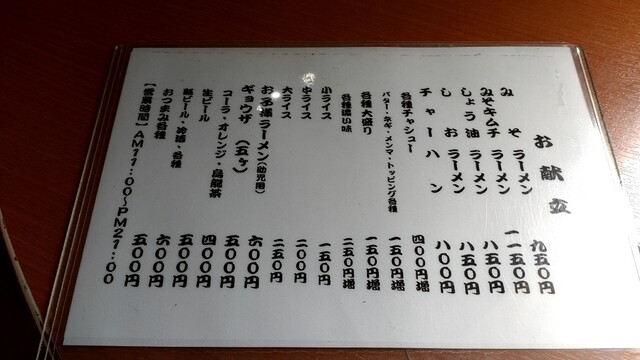 お献立
みそラーメン 九五〇円
みそキムチラーメン 一一五〇円
しょう油ラーメン 八五〇円
しおラーメン 八五〇円
チャーハン 八〇〇円
各種チャシュー 四〇〇円増
バター・ネギ・メンマ・トッピング各種 一五〇円増
各種大盛り 一五〇円増
各種濃い味 二五〇円増
小ライス 一五〇円
中ライス 二〇〇円
大ライス 二五〇円
お子様ラーメン(幼児用) 六〇〇円
ギョウザ(五ヶ) 五〇〇円
コーラ・オレンジ・烏龍茶 四〇〇円
生ビール 五〇〇円
瓶ビール・冷酒・各種 六〇〇円
おつまみ各種 五〇〇円
【営業時間】AM11:00〜PM21:00